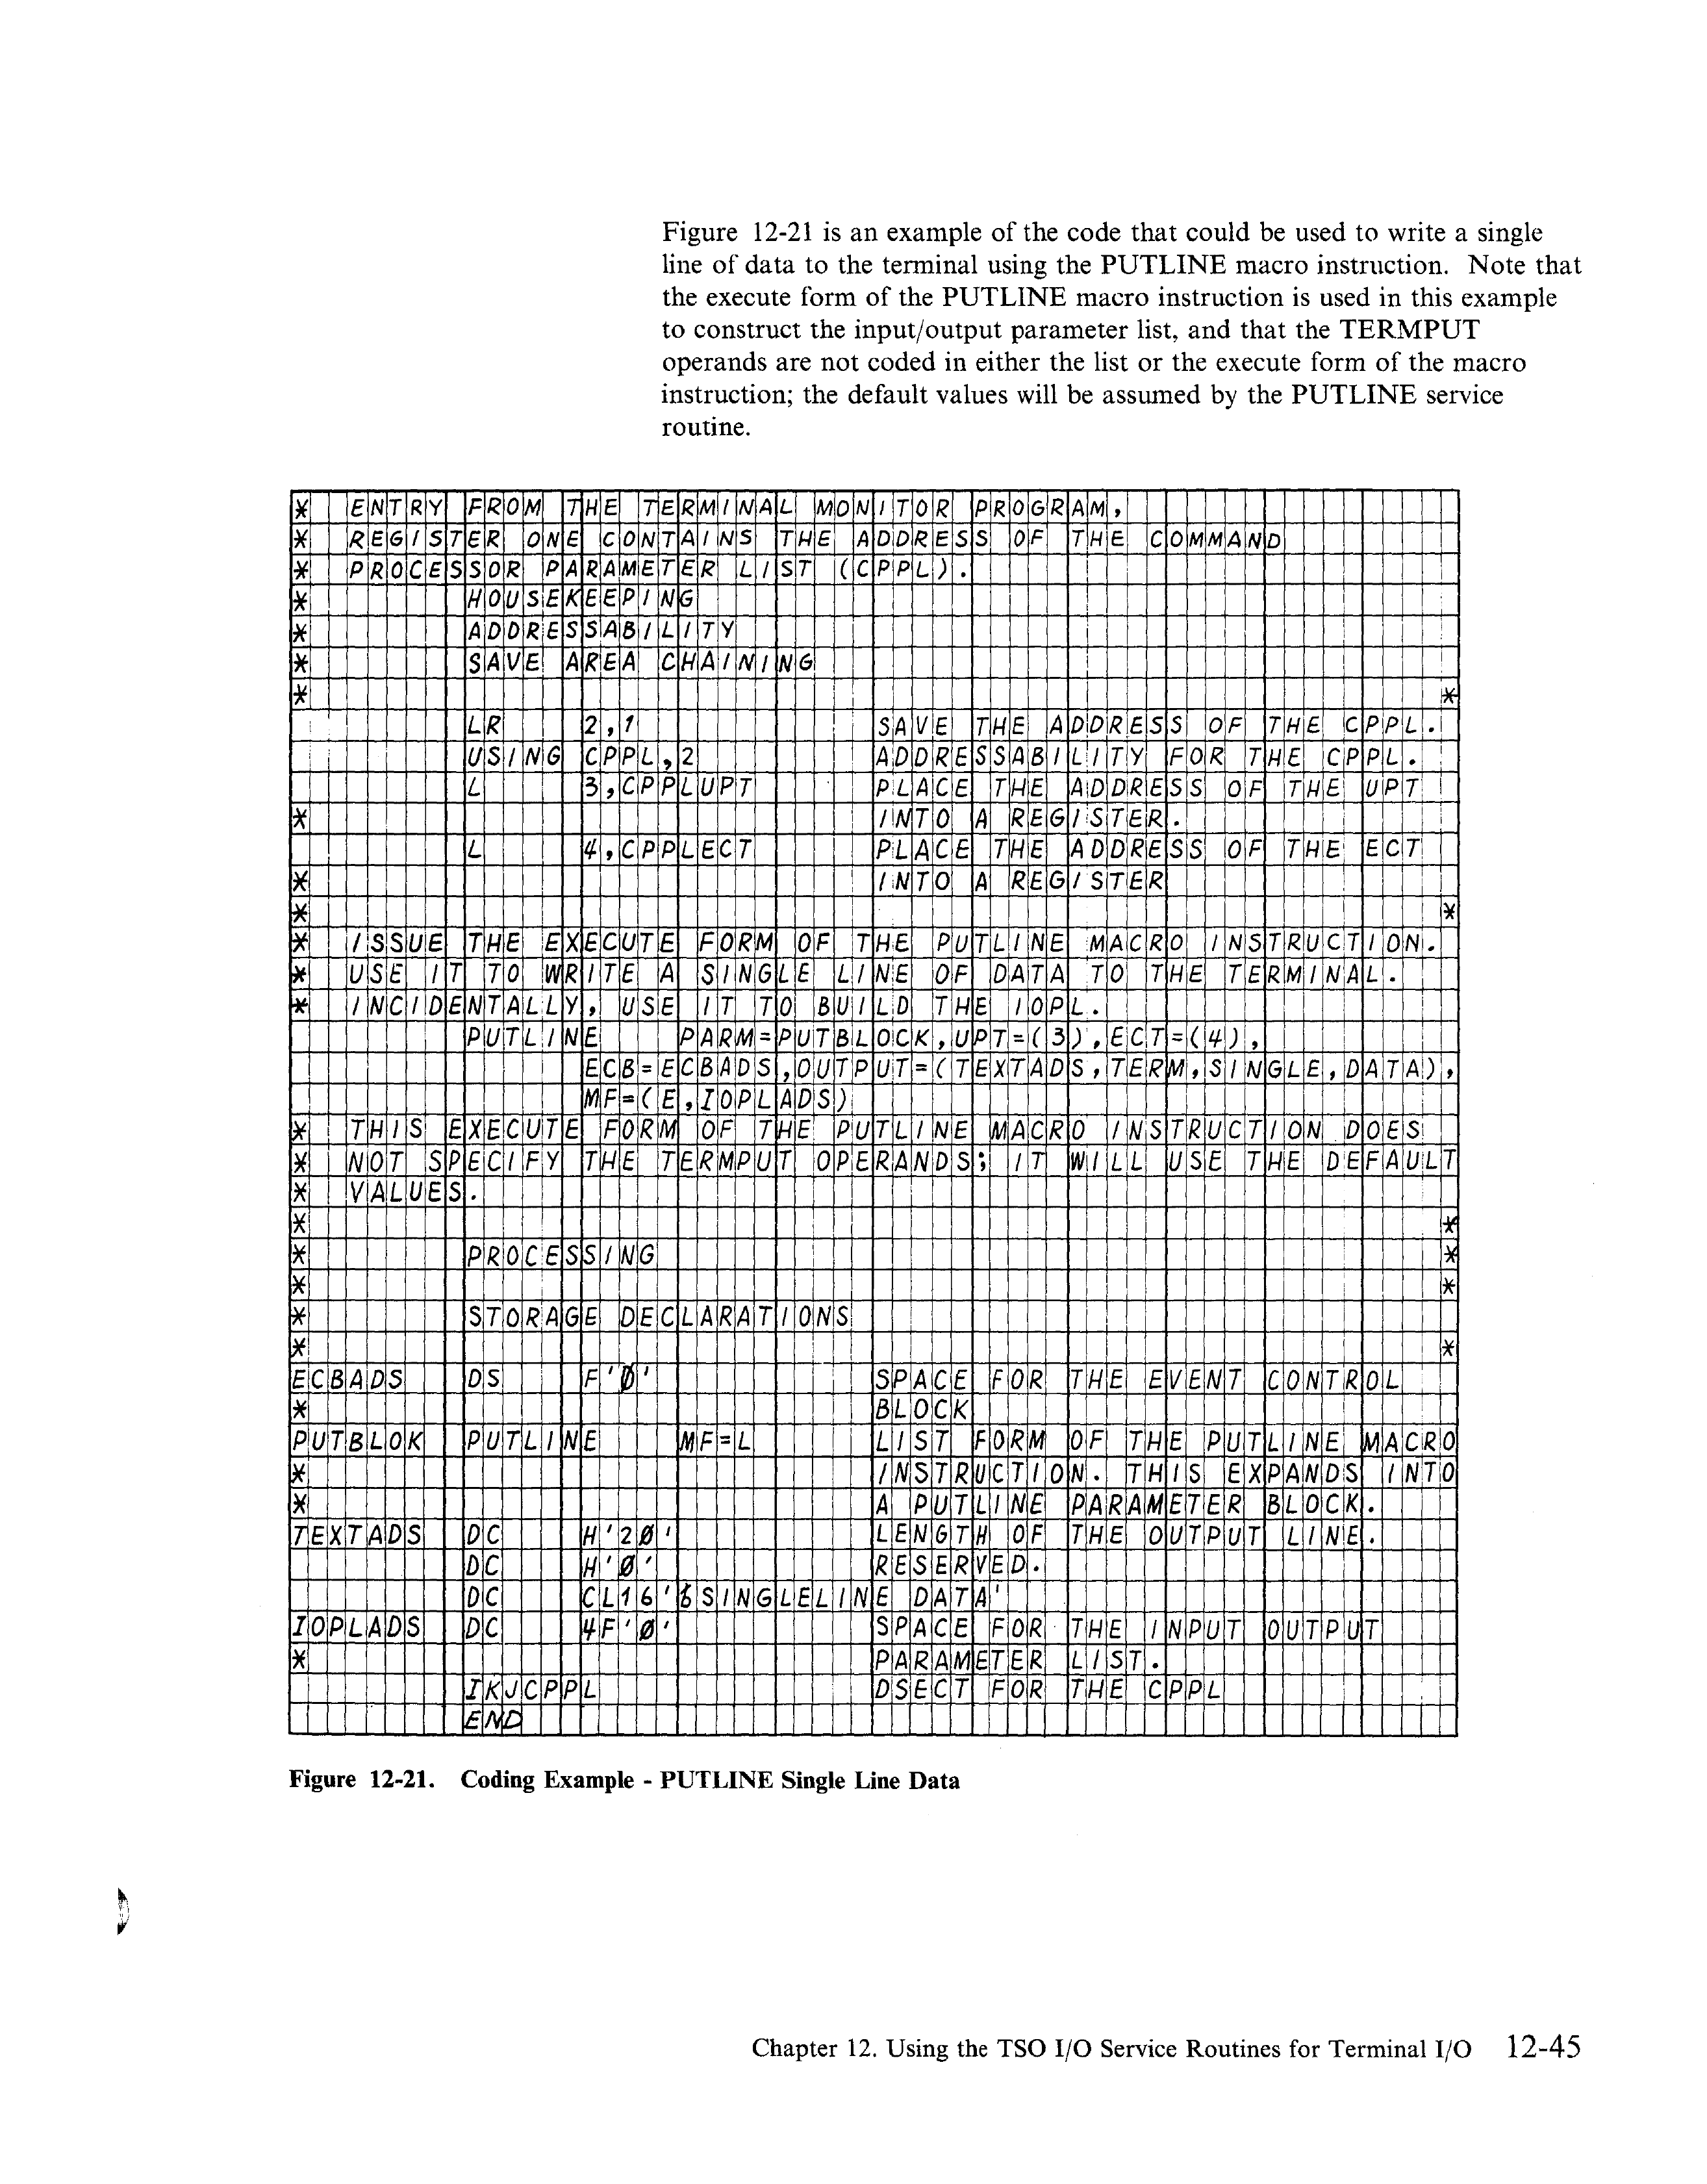 Figure 12-21 is an example of the code that could be used to write a single
line of data to the terminal using the PUTLINE macro instruction. Note that
the execute form of the PUTLINE macro instruction is used in this example
to construct the input/output parameter list, and that the TERMPUT
operands are not coded in either the list or the execute form of the macro
instruction; the default values will be assumed by the PUTLINE service
routine.
*  ENTRY FROM THE TERMINAL MONITOR PROGRAM,
*  REGISTER ONE CONTAINS THE ADDRESS OF THE COMMAND
*  PROCESSOR PARAMETER LIST (CPPL).
*        HOUSEKEEPING
*        ADDRESSABILITY
*        SAVE AREA CHAINING
*                                                          *
         LR    2,1            SAVE THE ADDRESS OF THE CPPL.
         USING CPPL,2         ADDRESSABILITY FOR THE CPPL.
         L     3,CPPLUPT      PLACE THE ADDRESS OF THE UPT
*                             INTO A REGISTER.
         L     4,CPPLECT      PLACE THE ADDRESS OF THE ECT
*                             INTO A REGISTER
*                                                          *
*  ISSUE THE EXECUTE FORM OF THE PUTLINE MACRO INSTRUCTION.
*  USE IT TO WRITE A SINGLE LINE OF DATA TO THE TERMINAL.
*  INCIDENTALLY, USE IT TO BUILD THE IOPL.
         PUTLINE    PARM=PUTBLOCK,UPT=(3),ECT=(4),
               ECB=ECBADS,OUTPUT=(TEXTADS,TERM,SINGLE,DATA),
               MF=(E,IOPLADS)
*  THIS EXECUTE FORM OF THE PUTLINE MACRO INSTRUCTION DOES
*  NOT SPECIFY THE TERMPUT OPERANDS; IT WILL USE THE DEFAULT
*  VALUES.
*                                                          *
*        PROCESSING                                        *
*                                                          *
*        STORAGE DECLARATIONS
*                                                          *
ECBADS   DS    F'0'           SPACE FOR THE EVENT CONTROL
*                             BLOCK
PUTBLOK  PUTLINE    MF=L      LIST FORM OF THE PUTLINE MACRO
*                             INSTRUCTION. THIS EXPANDS INTO
*                             A PUTLINE PARAMETER BLOCK.
TEXTADS  DC    H'20'          LENGTH OF THE OUTPUT LINE.
         DC    H'0'           RESERVED.
         DC    CL16'ƀSINGLELINE DATA'
IOPLADS  DC    4F'0'          SPACE FOR THE INPUT OUTPUT
*                             PARAMETER LIST.
         IKJCPPL              DSECT FOR THE CPPL
         END
Figure 12-21. Coding Example - PUTLINE Single Line Data
Chapter 12. Using the TSO I/O Service Routines for Terminal I/O 12-45